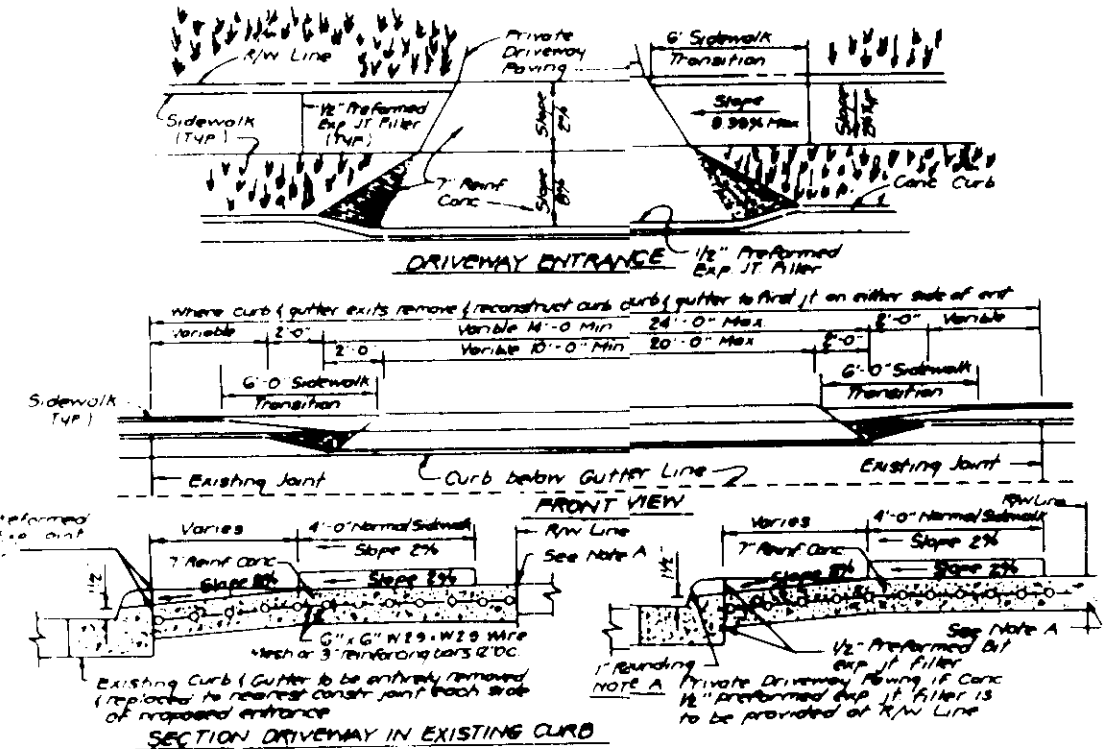 Private
Driveway
Paving
6' Sidewalk
Transition
R/W Line
1/2" Preformed
Exp. JT Filler
(TYP)
Sidewalk
(TYP)
Slope
2%
Slope
Max
Slope
7" Reinf
Conc
Slope
8%
Conc Curb
1/2" Preformed
Exp. JT. Filler
DRIVEWAY ENTRANCE
Where curb & gutter exits remove & reconstruct curb curb & gutter to first jt on either side of ent
Variable
2'-0"
Varible 14'-0 Min
24'-0" Max
2'-0"
Variable
2'-0
Varible 10'-0" Min
20'-0" Max
2'-0"
6'-0" Sidewalk
Transition
6'-0" Sidewalk
Transition
Sidewalk
TYP)
Existing Joint
Curb below Gutter Line
Existing Joint
FRONT VIEW
Varies
4'-0" Normal Sidewalk
Slope 2%
R/W Line
See Note A
7" Reinf Conc
Slope 8%
Slope 2%
1 1/2
6" x 6" W2.9 x W2.9 Wire
Mesh or 3" reinforcing bars 12" OC.
Existing Curb & Gutter to be entirely removed
& replaced to nearest constr joint each side
of proposed entrance
SECTION DRIVEWAY IN EXISTING CURB
R/W Line
Varies
4'-0" Normal Sidewalk
Slope 2%
7" Reinf Conc
Slope 8%
Slope 2%
1 1/2
See Note A
1/2" Preformed Bit
exp jt filler
1" Rounding
NOTE A Private Driveway Paving if Conc
1/2" preformed exp jt filler is
to be provided at R/W Line